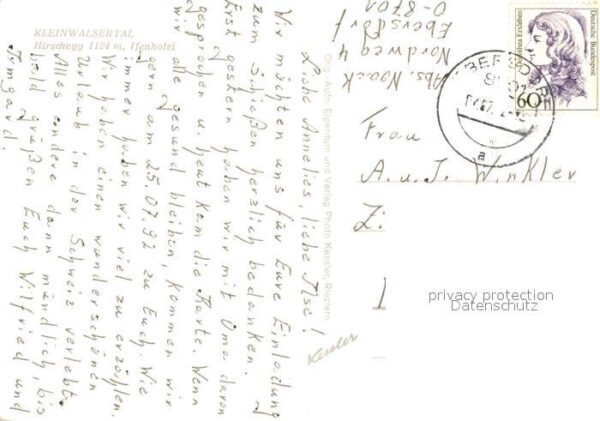 KLEINWALSERTAL
Hirschegg 1124 m, Ifenhotel
Liebe Annelies, liebe Ilse!
Wir möchten uns für Eure Einladung
zum Schießen herzlich bedanken.
Erst gestern haben wir mit Oma davon
gesprochen u. heut kam die Karte. Wenn
wir alle gesund bleiben, kommen wir
gern am 25.07.92 zu Euch. Wie
immer haben wir viel zu erzählen.
Wir haben einen wunderschönen
Urlaub in der Schweiz verlebt.
Alles andere dann mündlich, bis
bald grüßen Euch Wilfried und
Irmgard.
Org.-Aufn. Eigentum und Verlag Photo Kessler, Riezlern
Kessler
Abs. Noack
Nordweg 4
Ebersdorf
O-8701
Deutsche Bundespost
60
EBERSDORF
a
Frau
A. u. J. Winkler
privacy protection
Datenschutz